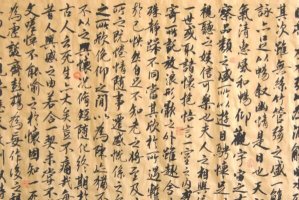 次雖無絲竹管弦之盛一
詠亦足以暢敘幽情是日也天
氣清惠風和暢仰觀宇宙之大
察品類之盛所以遊目騁懷足以
視聽之娛信可樂也夫人之相與
一世或取諸懷抱悟言一室之內
寄所託放浪形骸之外雖趣舍
殊靜躁不同當其欣於所遇
得於己快然自足不知老之將至
所之既惓情隨事遷感慨係之
所欣俛仰之間以為陳跡猶不
以之興懷況脩短隨化終期於
古人云死生亦大矣豈不痛哉每
昔人興感之由若合一契未嘗不
文嗟悼不能喻之於懷固知一
為虛誕齊彭殤為妄作後之